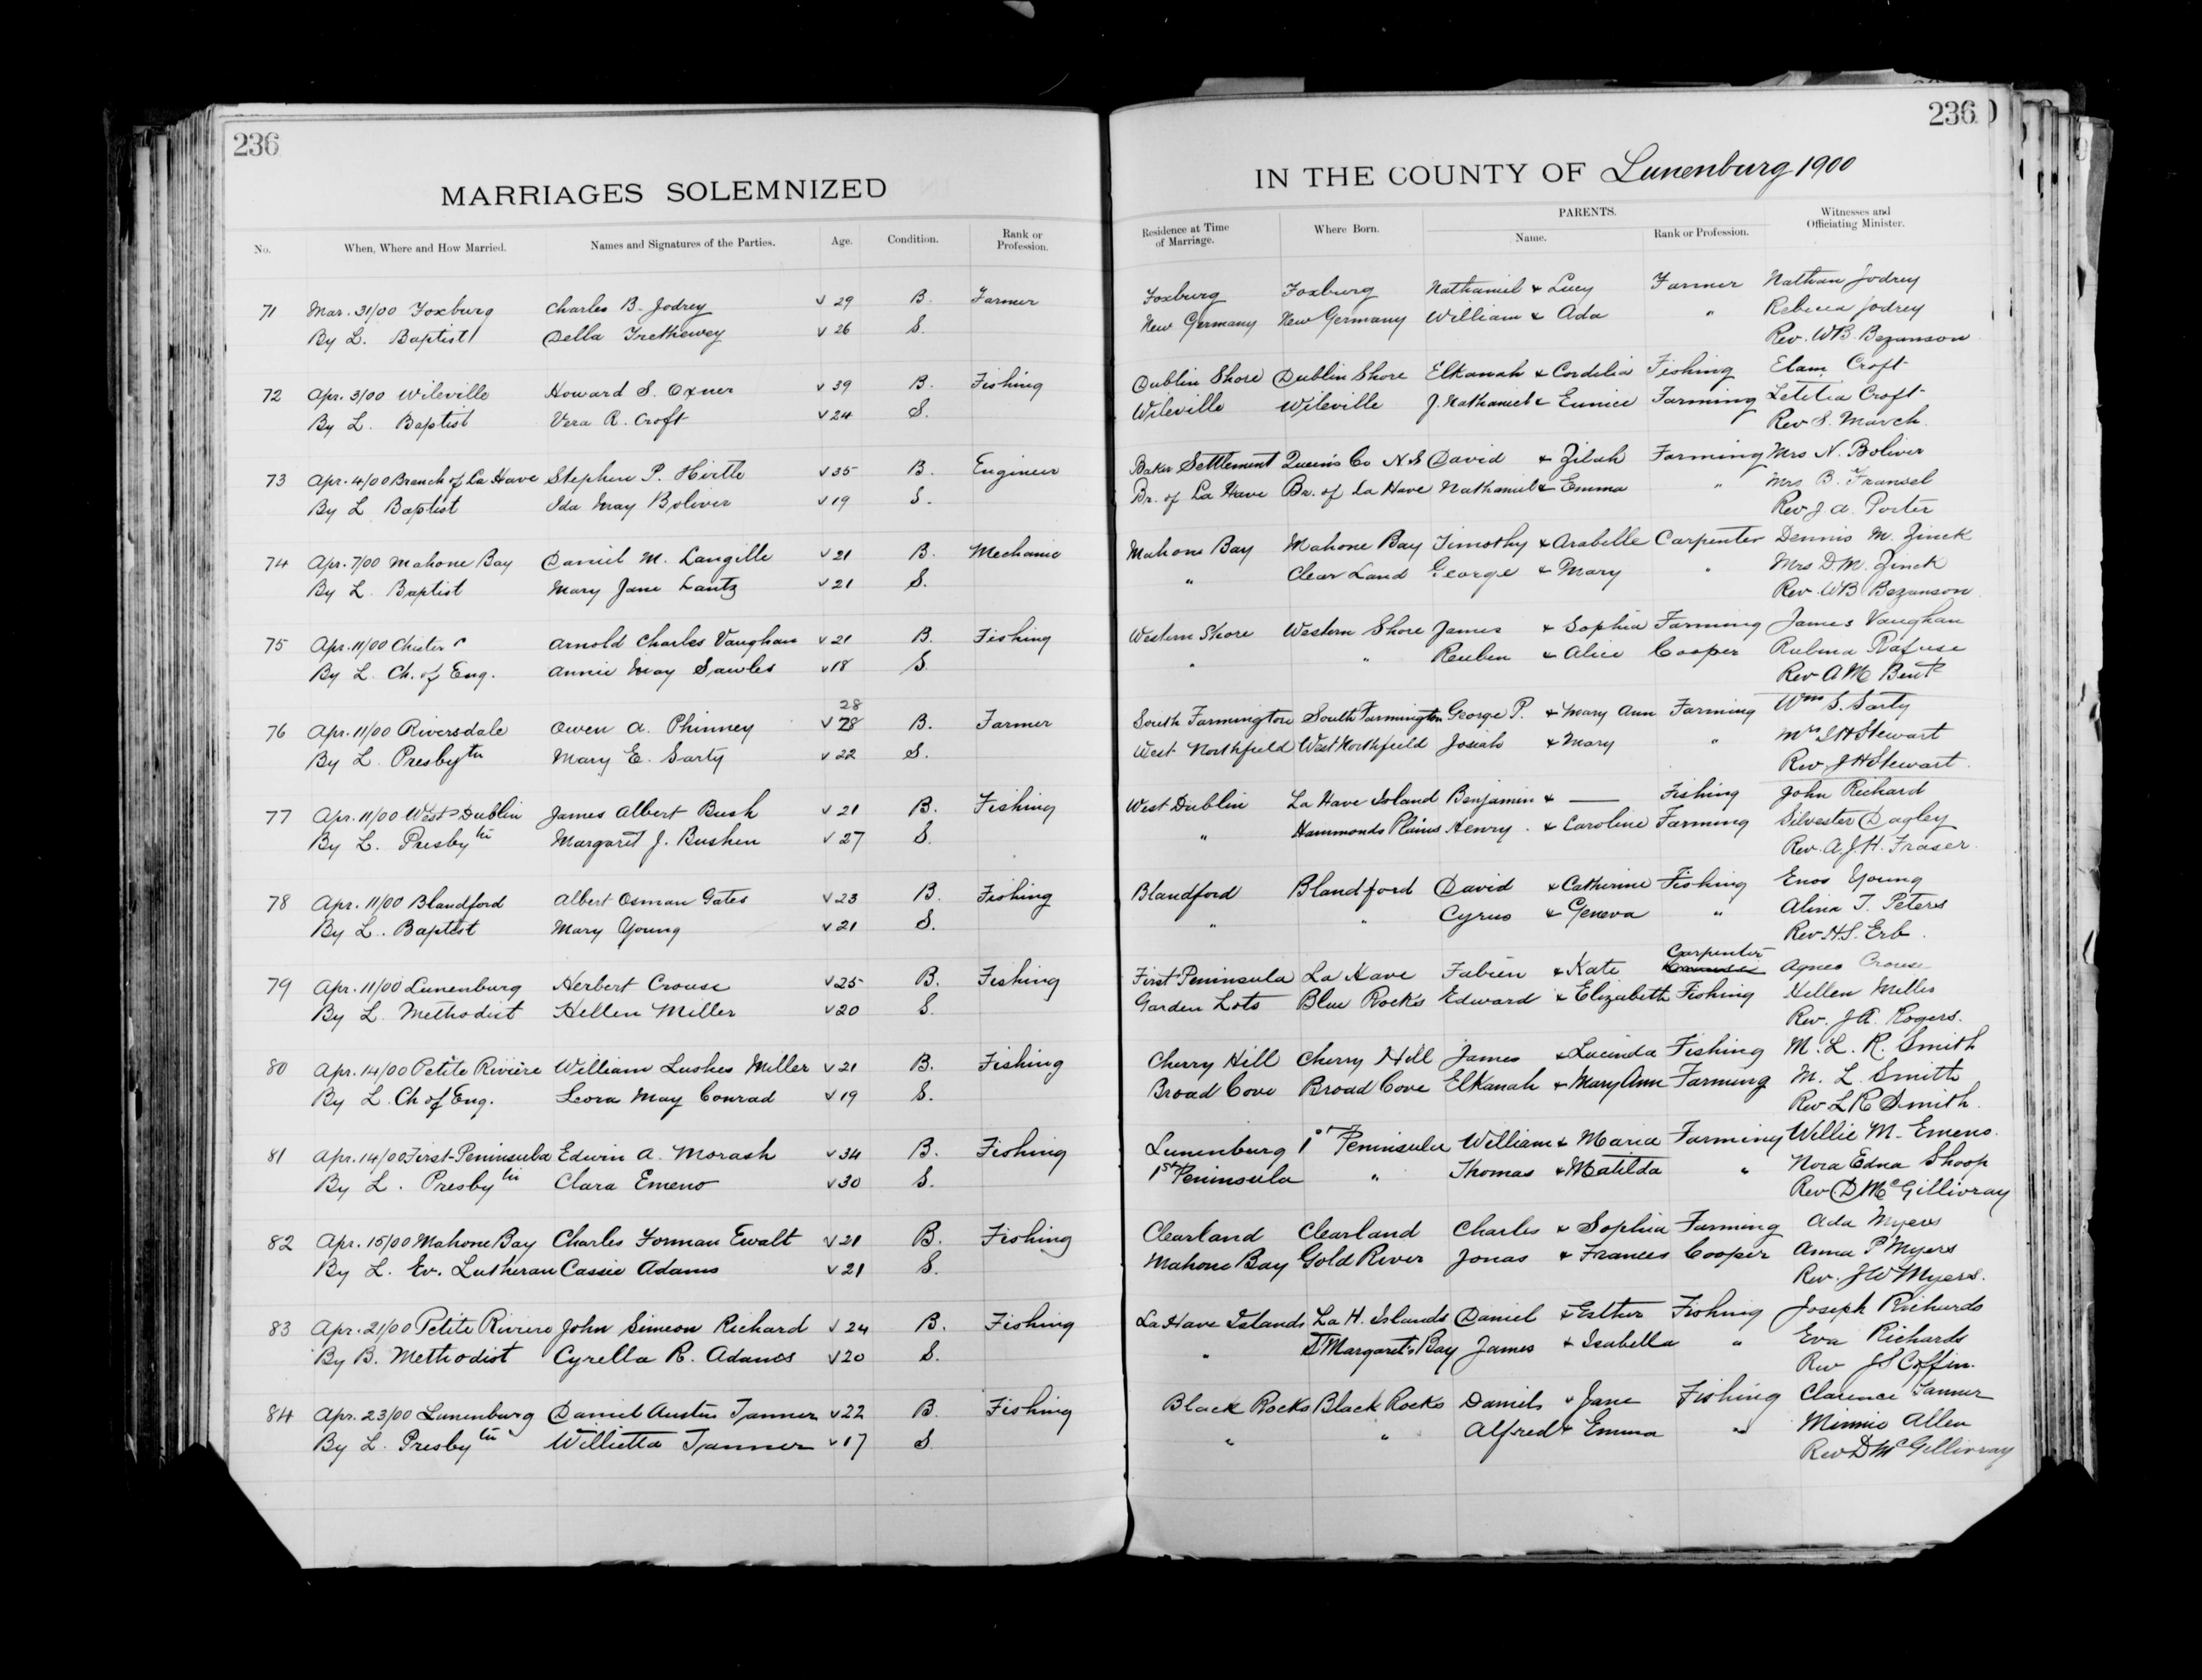 236
236
MARRIAGES SOLEMNIZED
IN THE COUNTY OF Lunenburg 1900
No. When, Where and How Married. Names and Signatures of the Parties. Age. Condition. Rank or Profession. Residence at Time of Marriage. Where Born. PARENTS. Name. Rank or Profession. Witnesses and Officiating Minister.
71 Mar. 31/00 Foxburg Charles B. Jodrey √ 29 B. Farmer Foxburg Foxburg Nathaniel & Lucy Farmer Nathan Jodrey
By L. Baptist Della Trethewey √ 26 S. New Germany New Germany William & Ada " Rebecca Jodrey
Rev. W B. Bezanson
72 Apr. 3/00 Wileville Howard S. Oxner √ 39 B. Fishing Dublin Shore Dublin Shore Elkanah & Cordelia Fishing Elam Croft
By L. Baptist Vera R. Croft √ 24 S. Wileville Wileville J. Nathaniel & Eunice Farming Letitia Croft
Rev S. March
73 Apr. 4/00 Branch of La Have Stephen P. Hirtle √ 35 B. Engineer Baker Settlement Queens Co N.S David & Zilah Farming Mrs N. Boliver
By L Baptist Ida May Boliver √ 19 S. Br. of La Have Br. of La Have Nathaniel & Emma " Mrs B. Fransel
Rev J. A. Porter
74 Apr. 7/00 Mahone Bay Daniel M. Langille √ 21 B. Mechanic Mahone Bay Mahone Bay Timothy & Arabelle Carpenter Dennis M. Zinck
By L. Baptist Mary Jane Lantz √ 21 S. " Clear Land George & Mary " Mrs D M. Zinck
Rev. W B Bezanson
75 Apr. 11/00 Chester Arnold Charles Vaughan √ 21 B. Fishing Western Shore Western Shore James & Sophia Farming James Vaughan
By L. Ch. of Eng. Annie May Sawles √ 18 S. " " Reuben & Alice Cooper Rafuse
Rev A M Bent
28
76 Apr. 11/00 Riversdale Owen A. Phinney √ 28 B. Farmer South Farmington South Farmington George P. & Mary Ann Farming Wm S. Sarty
By L. Presbytn Mary E. Sarty √ 22 S. West Northfield West Northfield Josiah & Mary " Mrs J H Stewart
Rev J H Stewart
77 Apr. 11/00 West Dublin James Albert Bush √ 21 B. Fishing West Dublin La Have Island Benjamin & — Fishing John Richard
By L. Presbytn Margaret J. Bushen √ 27 S. " Hammonds Plains Henry & Caroline Farming Silvester Dagley
Rev. A. J. H. Fraser
78 Apr. 11/00 Blandford Albert Osman Gates √ 23 B. Fishing Blandford Blandford David & Catherine Fishing Enos Young
By L. Baptist Mary Young √ 21 S. " " Cyrus & Geneva " Alma T. Peters
Rev H. S. Erb
Carpenter
79 Apr. 11/00 Lunenburg Herbert Crouse √ 25 B. Fishing First Peninsula La Have Fabien & Kate Agnes Crouse
By L. Methodist Hellen Miller √ 20 S. Garden Lots Blue Rocks Edward & Elizabeth Fishing Hellen Miller
Rev. J A. Rogers.
80 Apr. 14/00 Petite Rivière William Lushes Miller √ 21 B. Fishing Cherry Hill Cherry Hill James & Lucinda Fishing M. L. R. Smith
By L. Ch of Eng. Leora May Conrad √ 19 S. Broad Cove Broad Cove Elkanah & Mary Ann Farming M. L Smith
Rev L R Smith
81 Apr. 14/00 First Peninsula Edwin A. Morash √ 34 B. Fishing Lunenburg 1st Peninsula William & Maria Farming Willie M. Emeno.
By L. Presbytn Clara Emeno √ 30 S. 1st Peninsula " Thomas & Matilda " Nora Edna Shoop
Rev. D McGillivray
82 Apr. 15/00 Mahone Bay Charles Forman Ewalt √ 21 B. Fishing Clearland Clearland Charles & Sophia Farming Ada Myers
By L. Ev. Lutheran Cassie Adams √ 21 S. Mahone Bay Gold River Jonas & Frances Cooper Anna P Myers
Rev. J W Myers.
83 Apr. 21/00 Petite Riviere John Simeon Richard √ 24 B. Fishing La Have Islands La H. Islands Daniel & Esther Fishing Joseph Richards
By B. Methodist Cyrella R. Adams √ 20 S. " St Margaret's Bay James & Isabella " Eva Richards
Rev J S Coffin.
84 Apr. 23/00 Lunenburg Daniel Austin Tanner √ 22 B. Fishing Black Rocks Black Rocks Daniel " Jane Fishing Clarence Tanner
By L. Presbytn Willietta Tanner √ 17 S " " Alfred & Emma " Minnie Allen
Rev D McGillivray